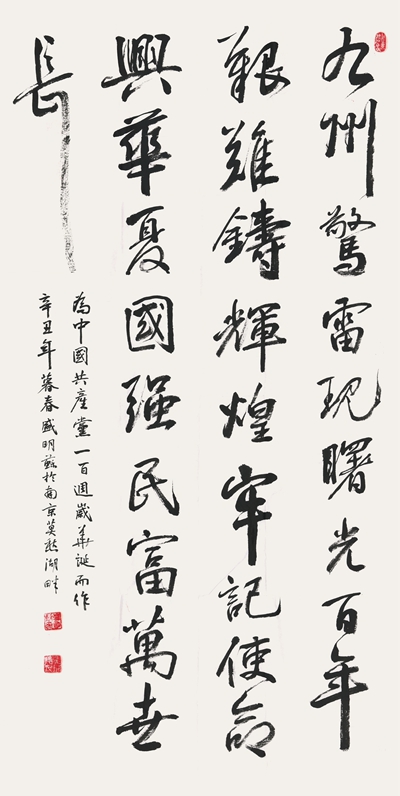 九州驚雷現曙光百年
艱難鑄輝煌牢記使命
興華夏國強民富萬世
長
為中國共產黨一百週歲華誕而作
辛丑年暮春盛明蘇於南京莫愁湖畔